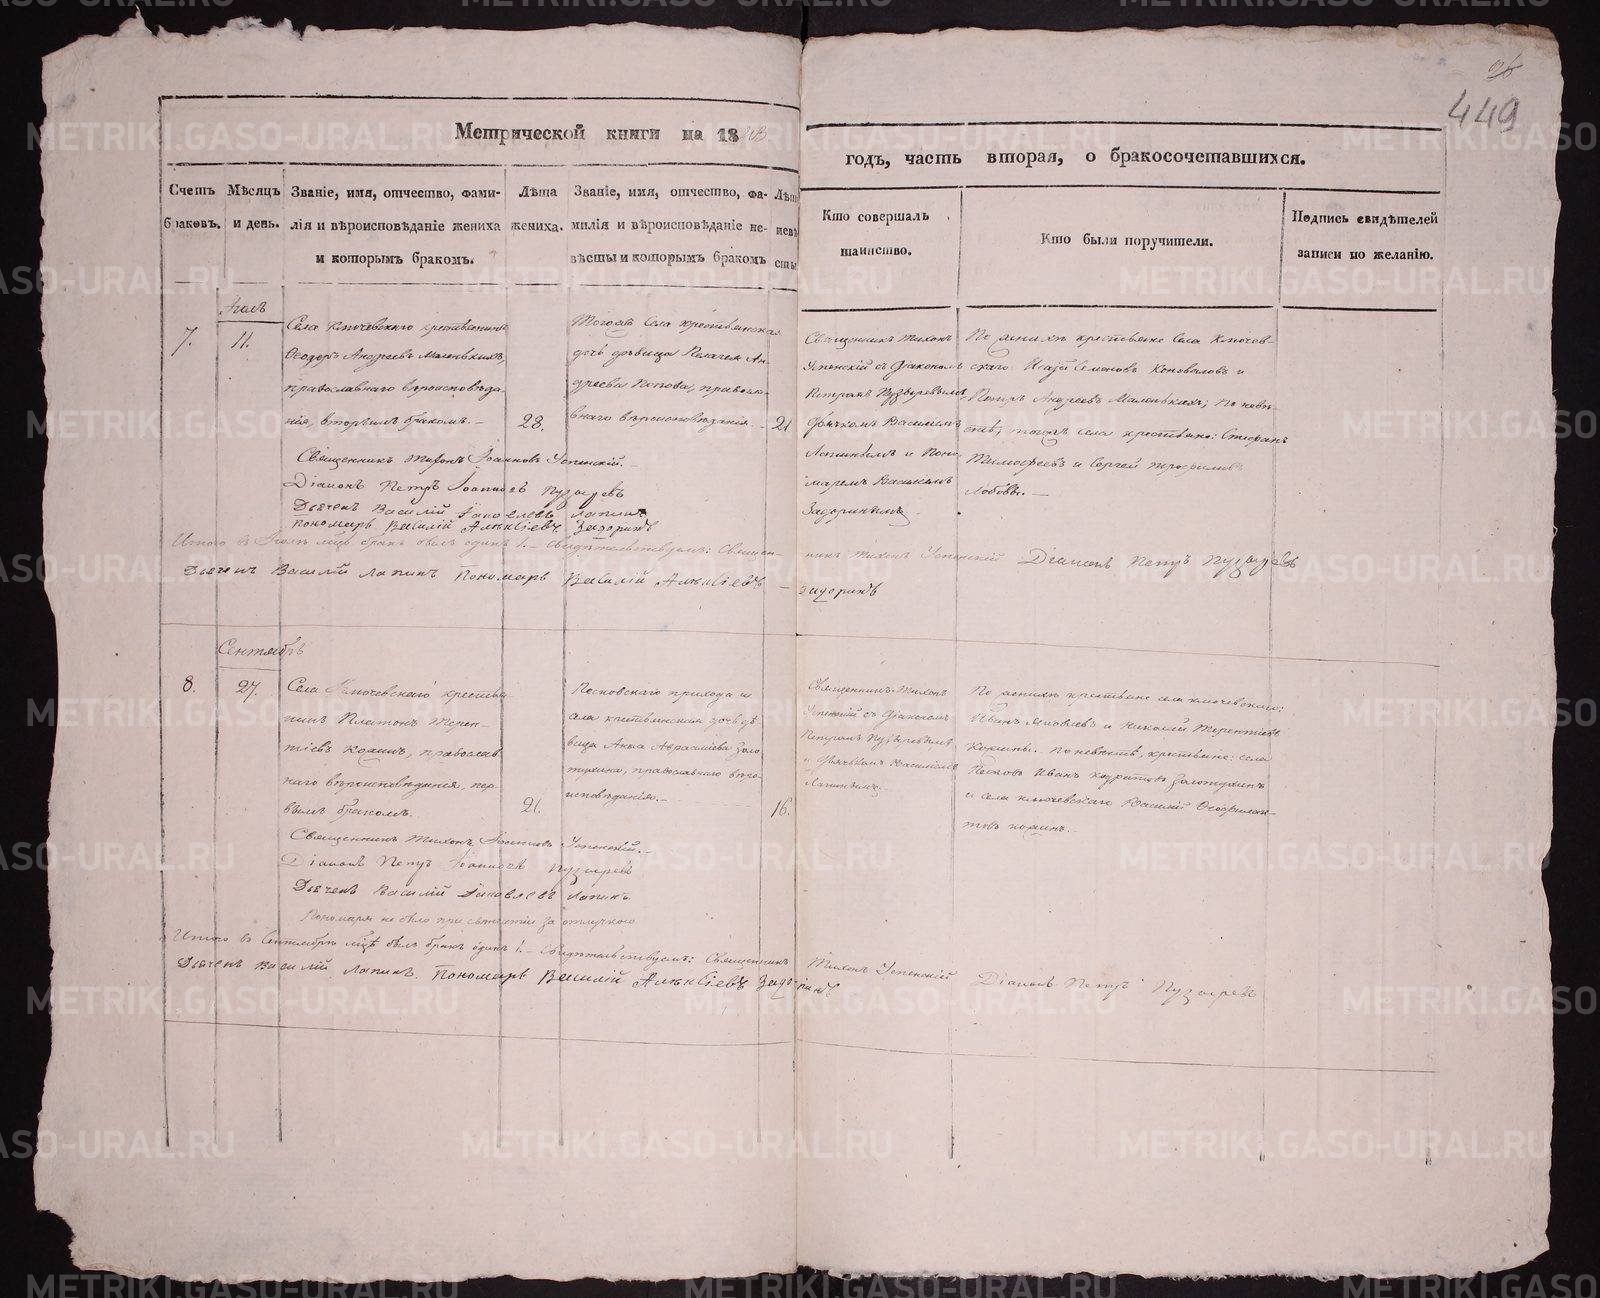 449
Метрической книги на 18
годъ, часть вторая, о бракосочетавшихся.
Счетъ браковъ.
Мѣсяцъ и день.
Званіе, имя, отчество, фами-
лія и вѣроисповѣданіе жениха
и которымъ бракомъ.
Лѣта жениха.
Званіе, имя, отчество, фа-
милія и вѣроисповѣданіе не-
вѣсты и которымъ бракомъ
Лѣта невѣ сты.
Кто совершалъ
таинство.
Кто были поручители.
Подпись свидѣтелей
записи по желанію.
7.
11.
Села Ключевскаго крестьянинъ
Ѳеодоръ Андреевъ Маленькихъ,
православнаго вѣроисповѣда-
нія, вторымъ бракомъ.
28.
Тогоже села крестьянская
дочь дѣвица Пелагея Ан-
дреева Попова, правосла-
внаго вѣроисповѣданія.
21
Священникъ Тихонъ
Успенскій съ Діакономъ
Петромъ Пузыревымъ
Дьячкомъ Василіемъ
Лапинымъ и Поно-
маремъ Василіемъ
Задоринымъ
По женихѣ крестьяне села Ключев-
скаго: Исаія Семеновъ Коноваловъ и
Петръ Андреевъ Маленькихъ; по невѣ-
стѣ, тогоже села крестьяне: Стефанъ
Тимофеевъ и Сергей Трофимовъ
Священникъ Тихонъ Іоанновъ Успенскій.
Діаконъ Петръ Іоанновъ Пузыревъ
Дьячекъ Василій Іаковлевъ Лапинъ
Пономарь Василій Алексіевъ Задоринъ
бракъ былъ одинъ 1. Свидѣтельствуемъ: Священ-
никъ Тихонъ Успенскій Діаконъ Петръ Пузыревъ
Дьячекъ Василій Лапинъ Пономарь Василій Алексіевъ
Задоринъ
Сентябрь
8.
27.
Села Ключевскаго крестья-
нинъ Платонъ Терен-
тіевъ Коринъ, православ
наго вѣроисповѣданія, пер-
вымъ бракомъ.
21.
Песковскаго прихода и
села крестьянская дочь дѣ-
вица Анна Золо-
тухина, православнаго вѣро-
исповѣданія.
16.
Священникъ Тихонъ
Успенскій съ Діакономъ
Петромъ Пузыревымъ
и Дьячкомъ Василіемъ
Лапинымъ.
По женихѣ крестьяне села Ключевскаго:
Иванъ Яковлевъ и Николай Терентіевъ
Корины. По невѣстѣ, крестьяне: села
Песковъ Иванъ Золотухинъ
и села Ключевскаго Василій Ѳеофилак-
товъ Коринъ.
Священникъ Тихонъ Іоанновъ Успенскій.
Діаконъ Петръ Іоанновъ Пузыревъ
Дьячекъ Василій Іаковлевъ Лапинъ
Пономаря не было при вѣнчаніи за отлучкою
Итого въ Сентябрѣ м͠цѣ былъ бракъ одинъ 1. Свидѣтельствуемъ: Священникъ
Тихонъ Успенскій Діаконъ Петръ Пузыревъ
Дьячекъ Василій Лапинъ. Пономарь Василій Алексіевъ Задоринъ
METRIKI.GASO-URAL.RU